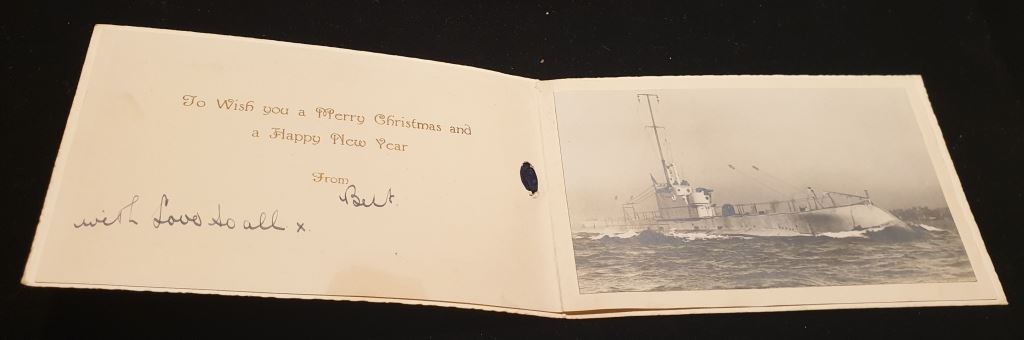 To Wish you a Merry Christmas and
a Happy New Year
From
Bert.
with Love to all x.